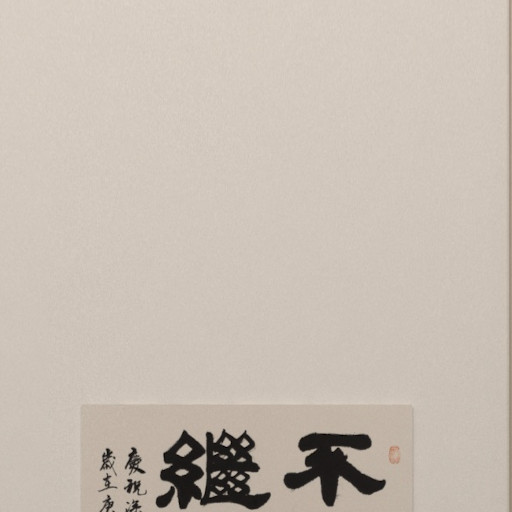 不
繼
慶祝
歲在庚